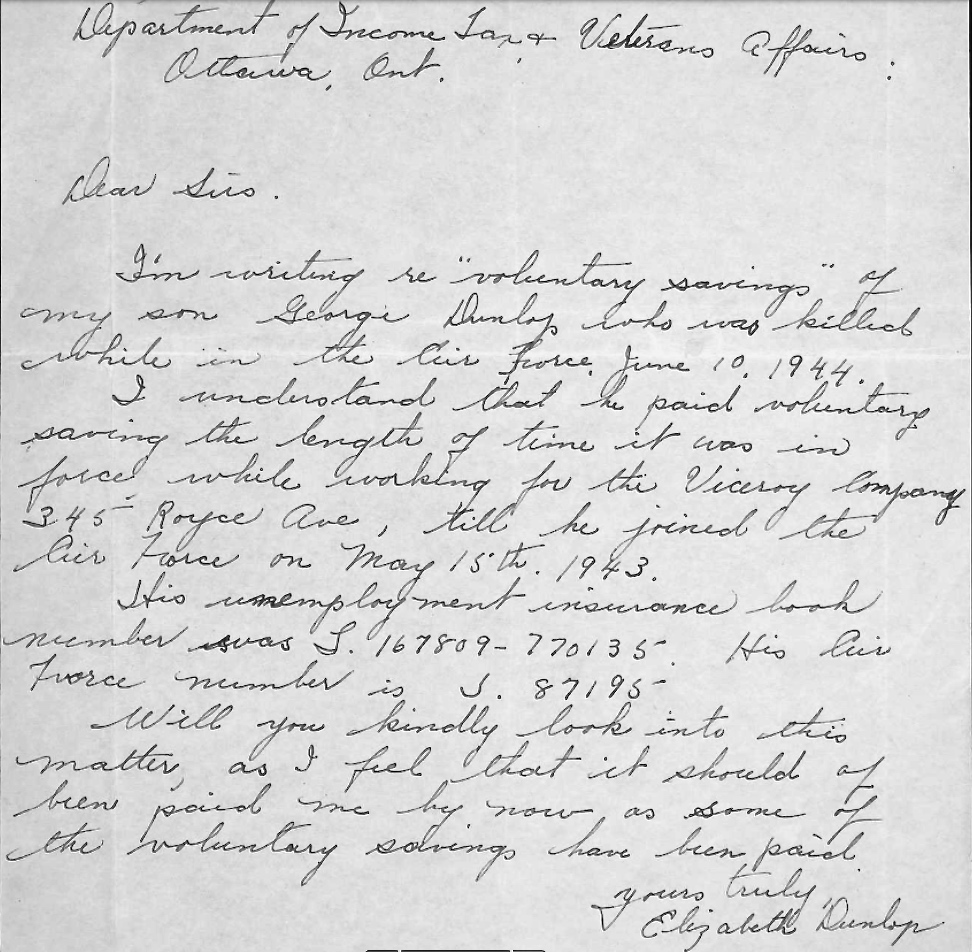 Department of Income Tax & Veterans Affairs.
Ottawa, Ont.
Dear Sirs.
I'm writing re "voluntary savings" of
my son George Dunlop who was killed
while in the Air Force, June 10, 1944.
I understand that he paid voluntary
saving the length of time it was in
force while working for the Viceroy Company
345 Royce Ave, till he joined the
Air Force on May 15th. 1943.
His unemployment insurance book
number was S. 167809-770135. His Air
Force number is J. 87195
Will you kindly look into this
matter, as I feel that it should of
been paid me by now as some of
the voluntary savings have been paid.
yours truly,
Elizabeth Dunlop